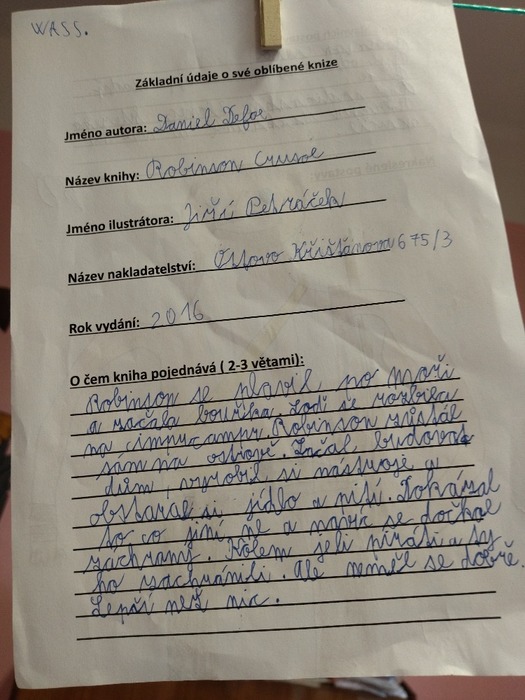 WASS.
Základní údaje o své oblíbené knize
Jméno autora: Daniel Defoe
Název knihy: Robinson Crusoe
Jméno ilustrátora: Jiří Petráček
Název nakladatelství: Křišťanova 675/3
Rok vydání: 2016
O čem kniha pojednává ( 2-3 větami):
Robinson se plavil po moři
a začala bouřka. Lodi se rozbila
na Robinson zůstal
sám na ostrově. Začal budovat
dům, vyrobil si nástroje a
obstaral si jídlo a pití. Dokázal
to co jiní ne a navíc se dočkal
záchrany. Kolem jeli piráti a ty
ho zachránili. Ale neměl se dobře.
Lepší než nic.